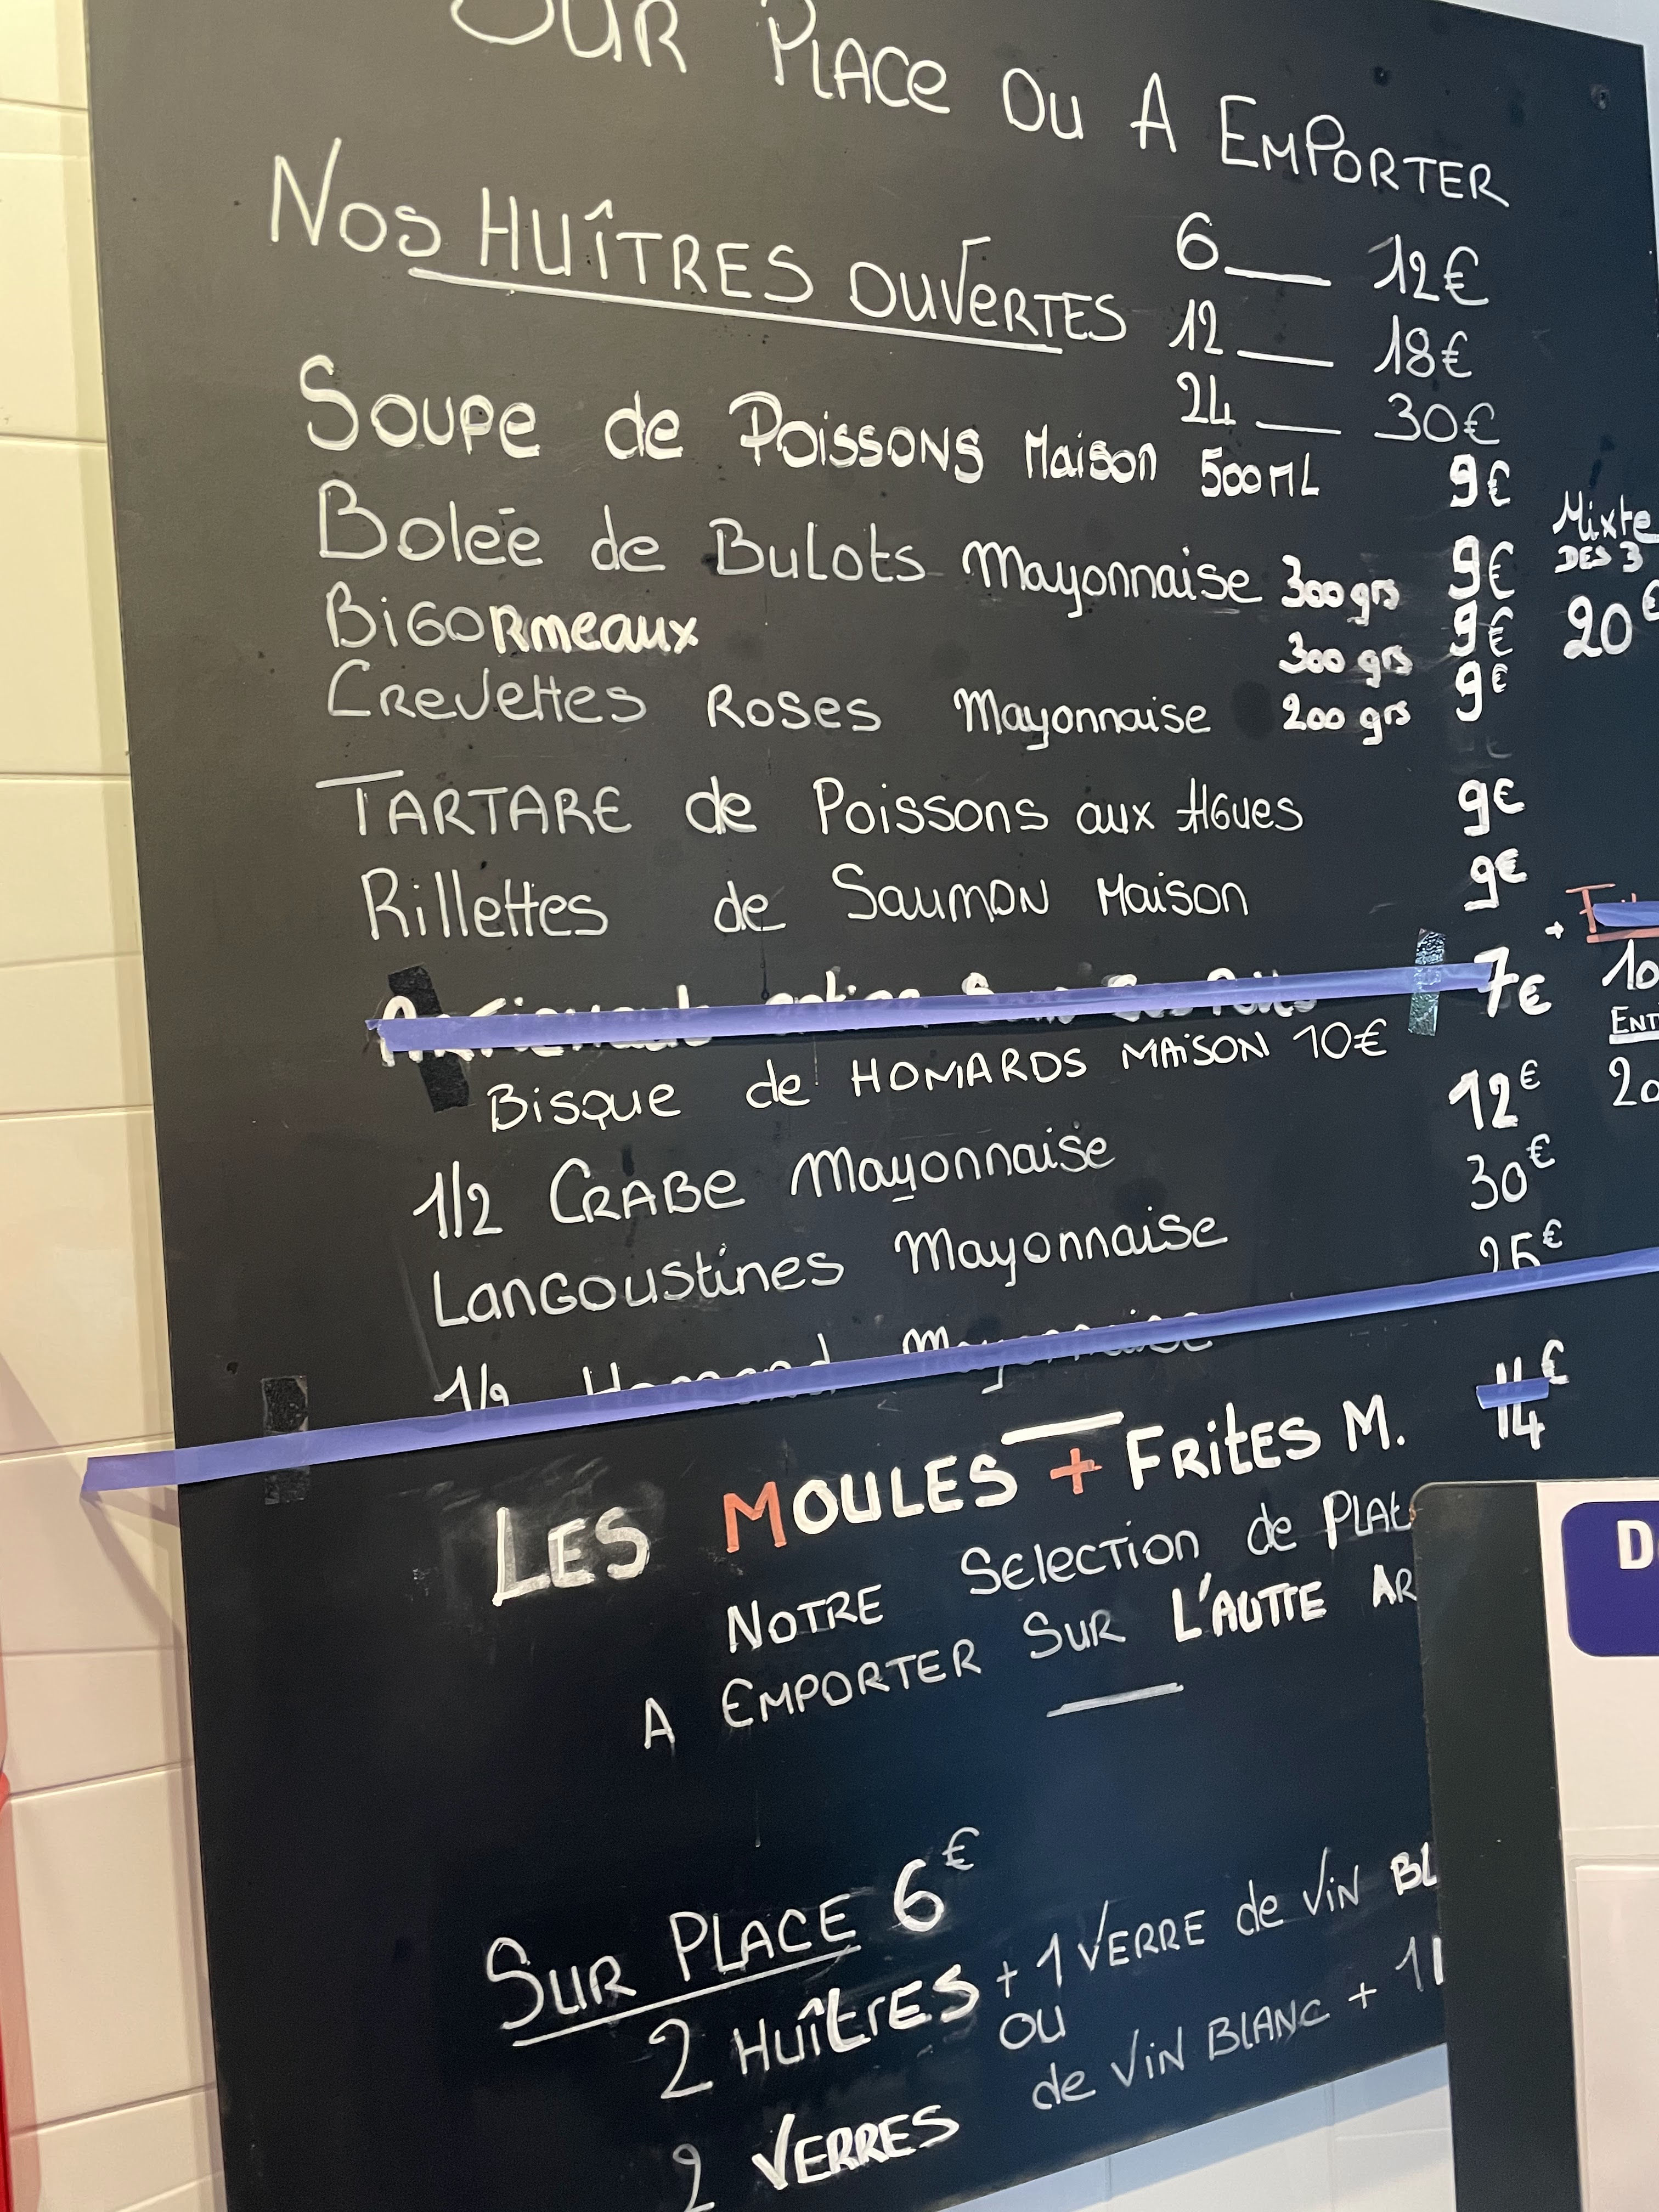 SUR PLACE OU A EMPORTER
NOS HUÎTRES OUVERTES 6 __ 12€
12 __ 18€
24 __ 30€
SOUPE de POISSONS Maison 500ML 9€
BOLÉE de BULOTS Mayonnaise 300 grs 9€
BIGORmeaux 300 grs 9€
CREVETTES ROSES Mayonnaise 200 grs 9€
Mixte
DES 3
20€
TARTARE de Poissons aux AlGues 9€
Rillettes de SAUMON Maison 9€
7€ +
10
ENT
20
Bisque de HOMARDS MAISON 10€
1/2 CRABE Mayonnaise 12€
LANGOUSTINES Mayonnaise 30€
Homard Mayonnaise
LES MOULES + FRITES M. 14€
NOTRE Selection de PLAT
A EMPORTER SUR L'AUTTE AR
SUR PLACE 6€
2 HUÎTRES + 1 VERRE de VIN BL
OU
2 VERRES de VIN BLANC + 1